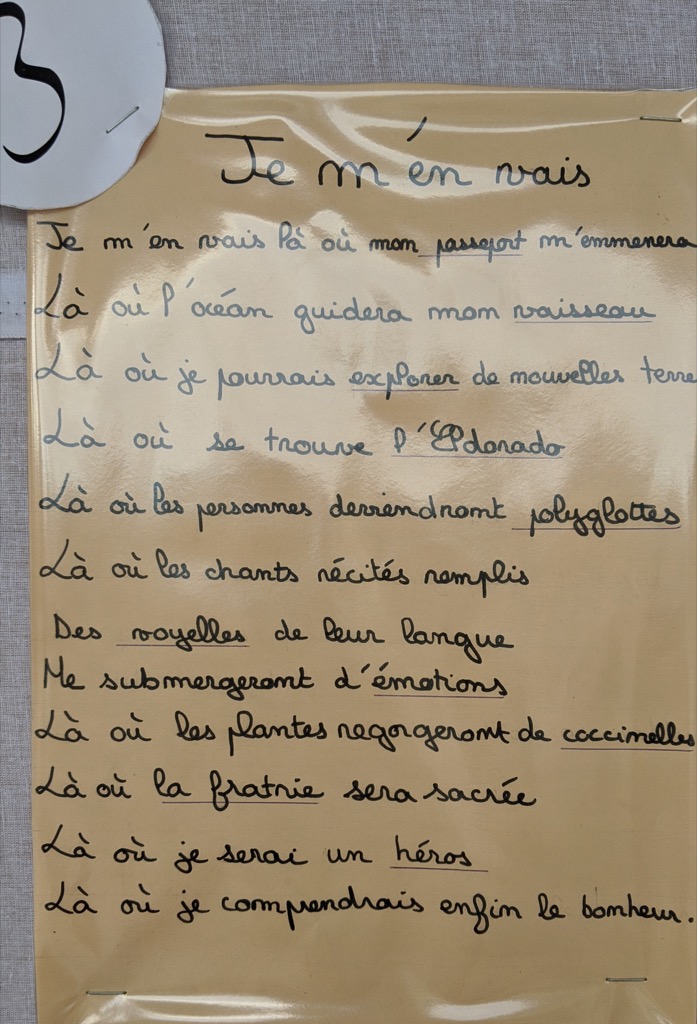 3
Je m'en vais
Je m'en vais là où mon passeport m'emmenera
Là où l'océan guidera mon vaisseau
Là où je pourrais explorer de nouvelles terre
Là où se trouve l'Eldorado
Là où les personnes deviendront polyglottes
Là où les chants récités remplis
Des voyelles de leur langue
Me submergeront d'émotions
Là où les plantes regorgeront de coccinelles
Là où la fratrie sera sacrée
Là où je serai un héros
Là où je comprendrais enfin le bonheur.